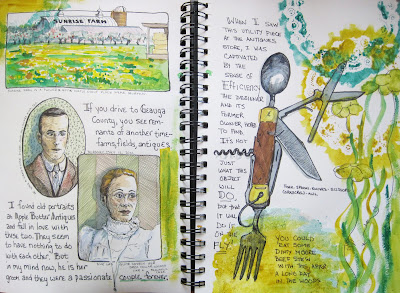 SUNRISE FARM
If you drive to Geauga
County, you see rem-
nants of another time-
farms, fields, antiques.
I found old portraits
at Apple Butter Antiques
and fell in love with
these two. They seem
to have nothing to do
with each other. But
in my mind now, he is her
groom and they were a passionate
couple forever
WHEN I SAW
THIS UTILITY PIECE
AT THE ANTIQUES
STORE, I WAS
CAPTIVATED
BY THE
SENSE OF
EFFICIENCY
THE DESIGNER
AND ITS
FORMER
OWNER HAD
TO FIND.
IT'S NOT
JUST
WHAT THIS
OBJECT
WILL
DO,
BUT THAT
IT WILL
DO IT
ON THE
FLY
FORK-SPOON-KNIVES-SCISSOR
CORKSCREW-AWL
YOU COULD
EAT SOME
DINTY MOORE
BEEF STEW
WITH THIS AFTER
A LONG DAY
IN THE WOODS